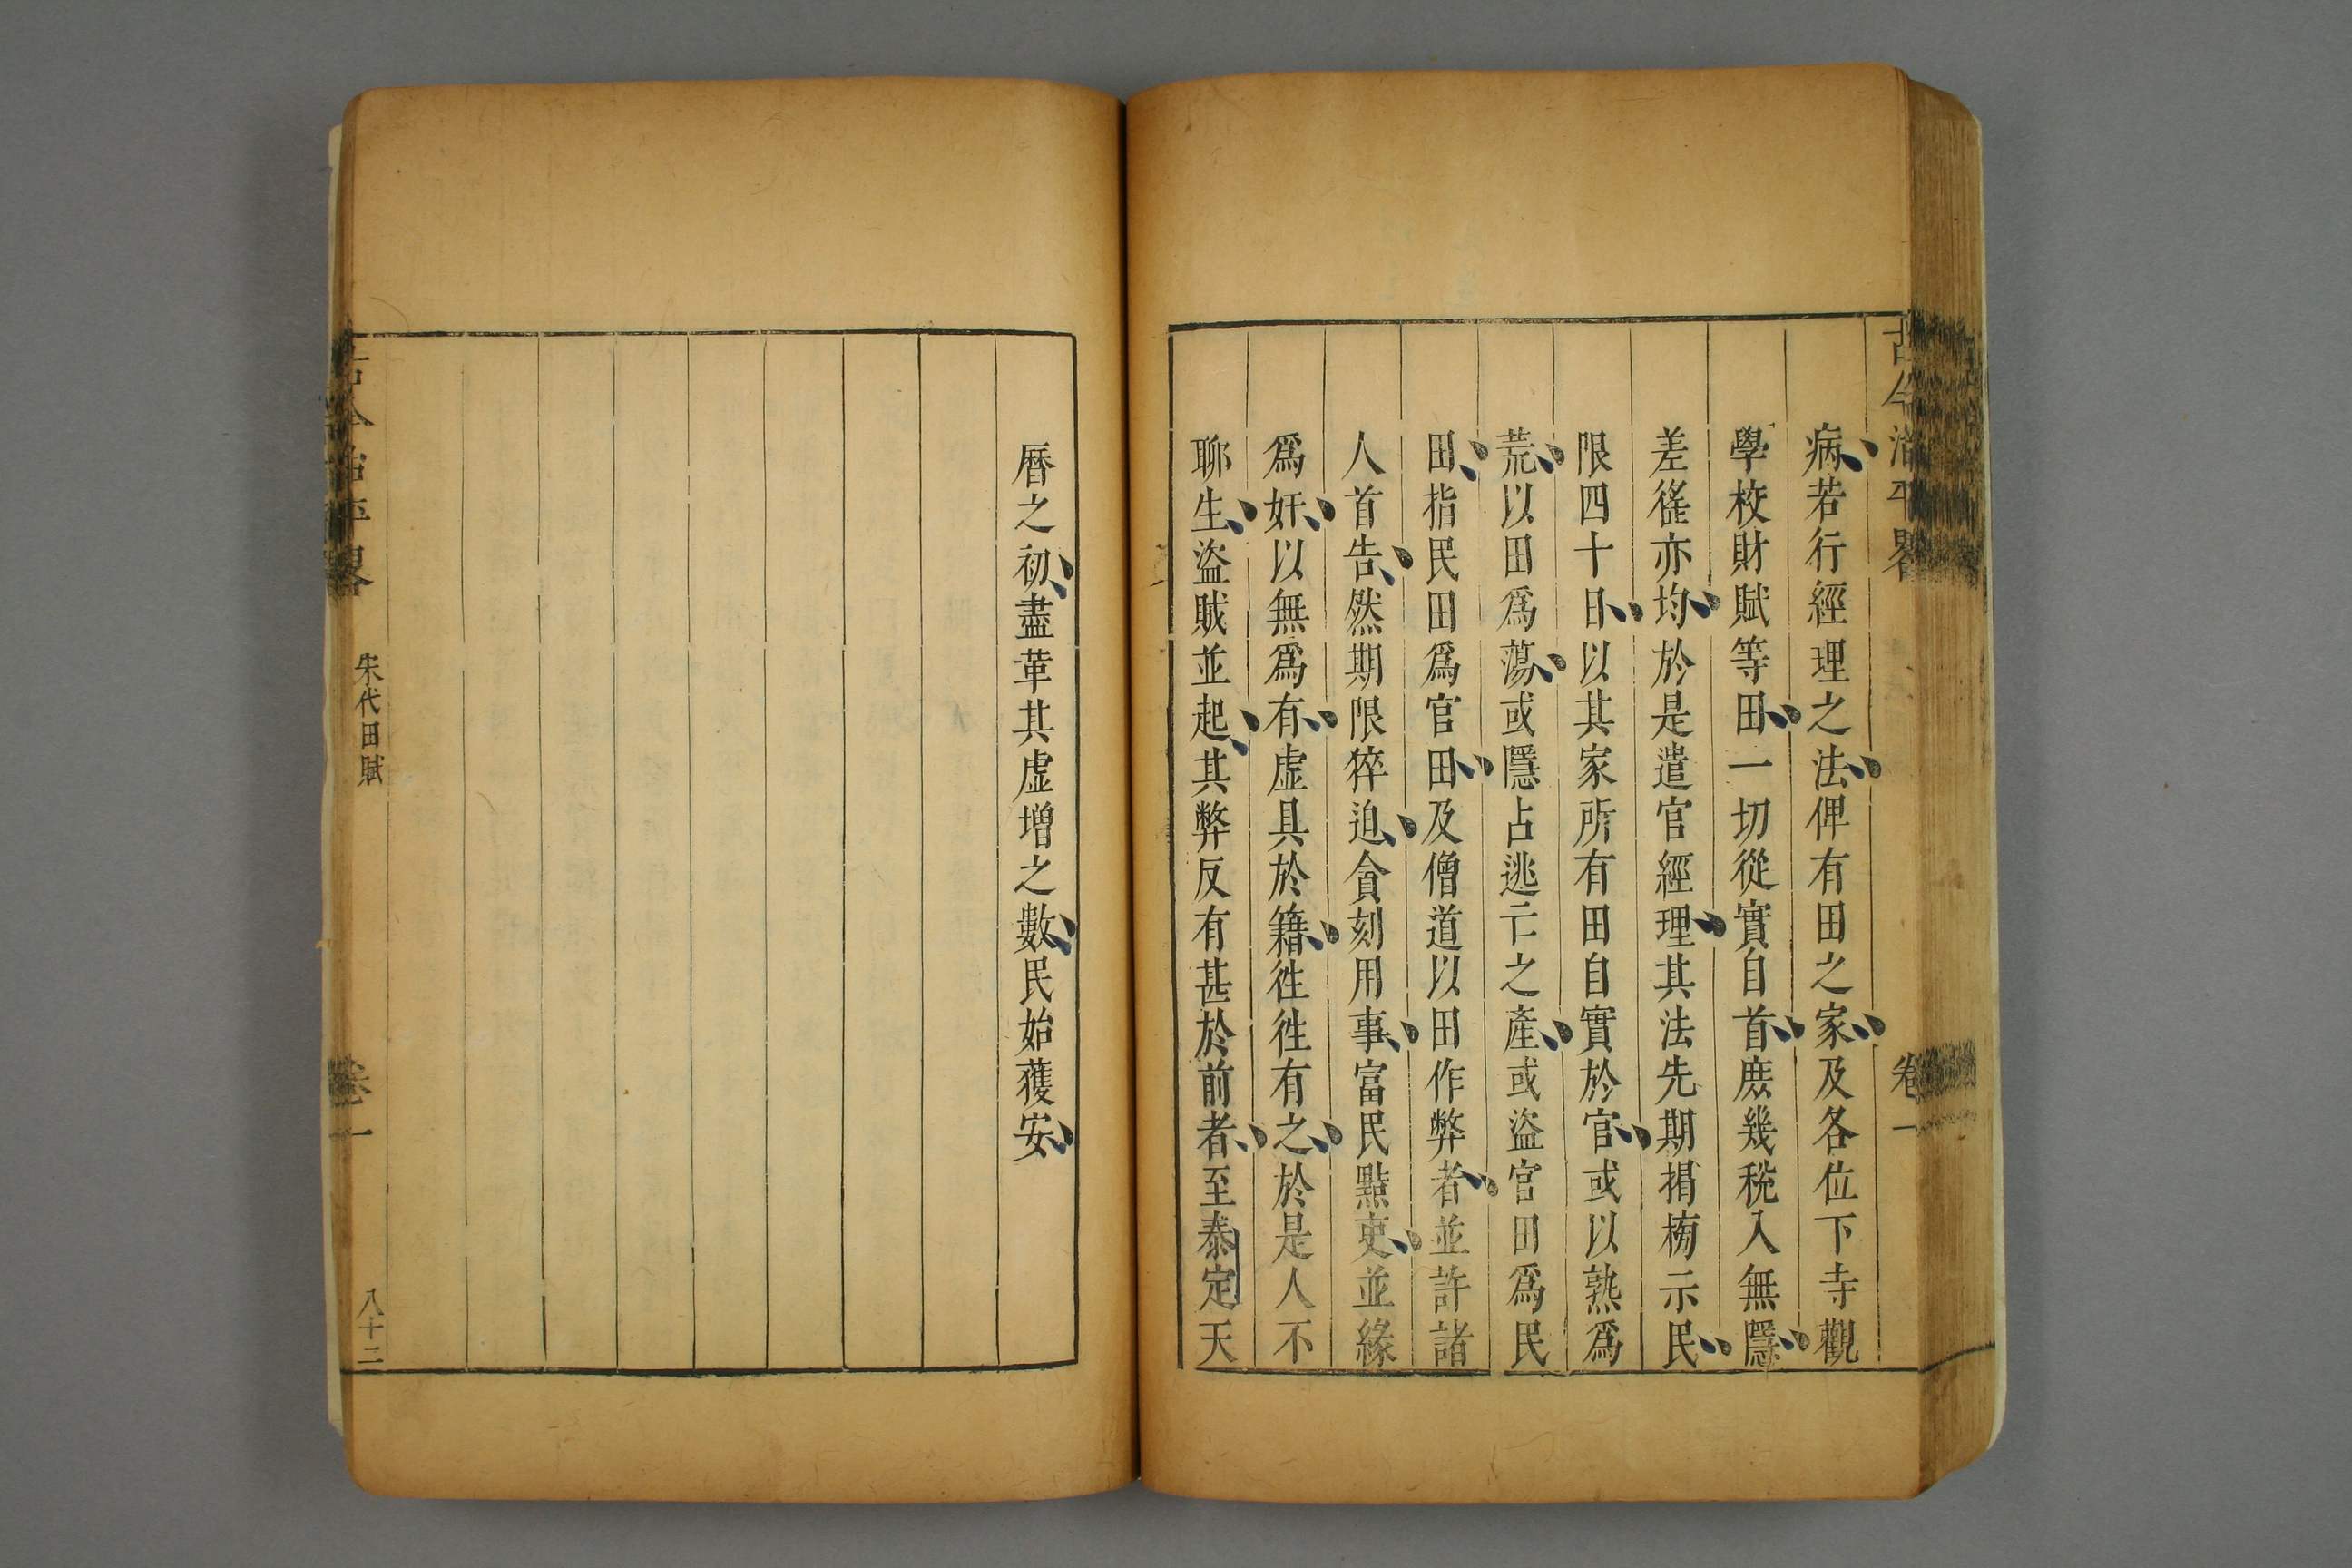 古今治平畧 卷一
病若行經理之法俾有田之家及各位下寺觀
學校財賦等田一切從實自首庶幾稅入無隱
差徭亦均於是遣官經理其法先期揭榜示民
限四十日以其家所有田自實於官或以熟爲
荒以田爲蕩或隱占逃亡之產或盜官田爲民
田指民田爲官田及僧道以田作弊者並許諸
人首告然期限猝迫貪刻用事富民黠吏並緣
爲奸以無爲有虛具於籍徃徃有之於是人不
聊生盜賊並起其弊反有甚於前者至泰定天
曆之初盡革其虛增之數民始獲安
古今治平畧 宋代田賦 卷一 八十二